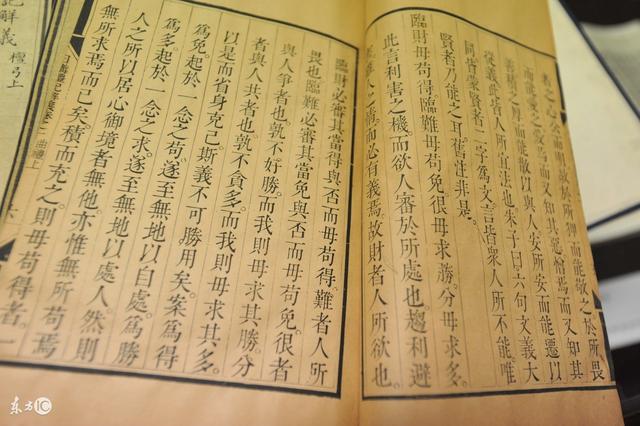 者之心必公而用敬於所狎而能敬之於所畏
而能愛之愛焉而又知其惡憎焉而又知其
善積而能散以與人安所安而能遷以
從義此皆人所宜法也朱子曰六句文義大
同皆蒙賢者二字爲文言皆衆人所不能唯
賢者乃能之耳舊注非是。
臨財毋苟得。臨難毋苟免。很毋求勝。分毋求多。
此言利害之機。而欲人審於所處也。趨利避
害雖人之情而必有義焉。故財者人所欲也。
臨財必審其當得與否而毋苟得。難者人所
畏也。臨難必審其當免與否而毋苟免。很者
與人爭者也。孰不好勝。而我則毋求其勝。分
者與人共者也。孰不貪多。而我則毋求其多。
以是而省身克己。斯義不可勝用矣。案爲得
爲免。起於一念之苟。遂至無地以自處。爲勝
爲多。起於一念之求。遂至無地以處人。然則
人之所以居心御境者。無他。亦惟無所苟焉
無所求焉而已矣。積而充之。則毋苟得者。一
日講禮記解義 卷二 曲禮上
記解義 檀弓上
东方IC